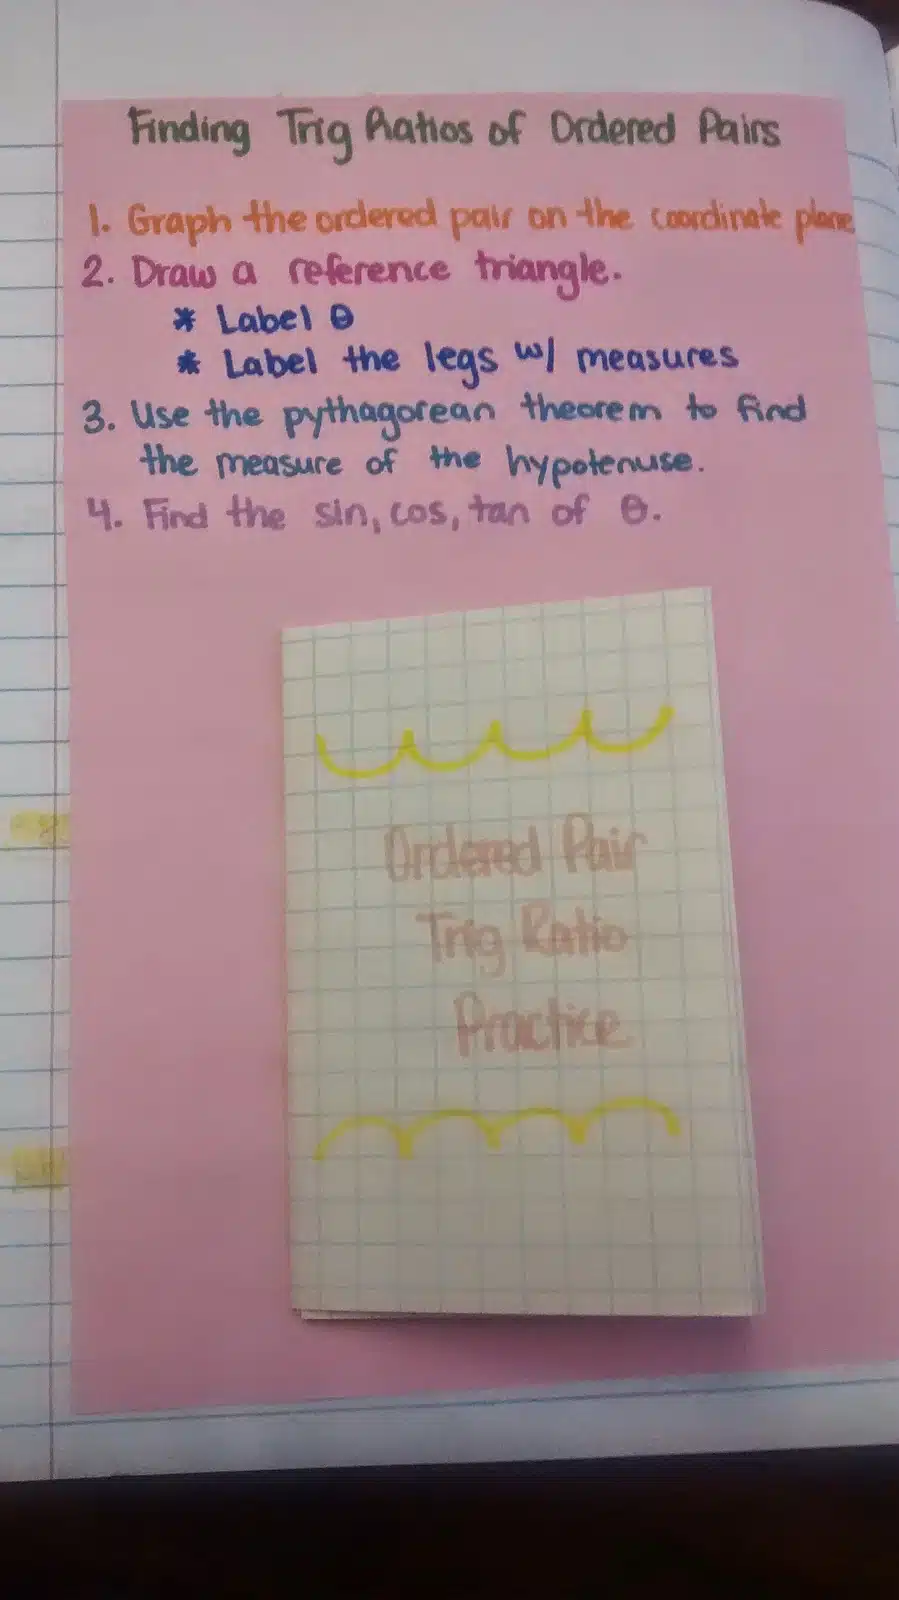 Finding Trig Ratios of Ordered Pairs
1. Graph the ordered pair on the coordinate plane
2. Draw a reference triangle.
* Label θ
* Label the legs w/ measures
3. Use the pythagorean theorem to find
the measure of the hypotenuse.
4. Find the sin, cos, tan of θ.
Ordered Pair
Trig Ratio
Practice